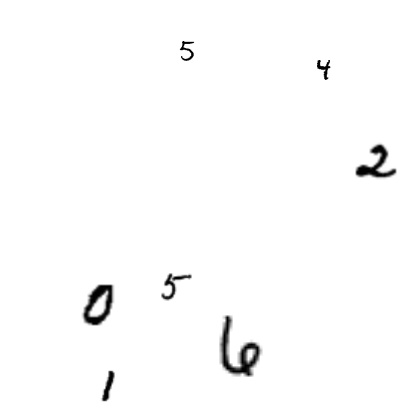 5
4
2
5
0
6
1